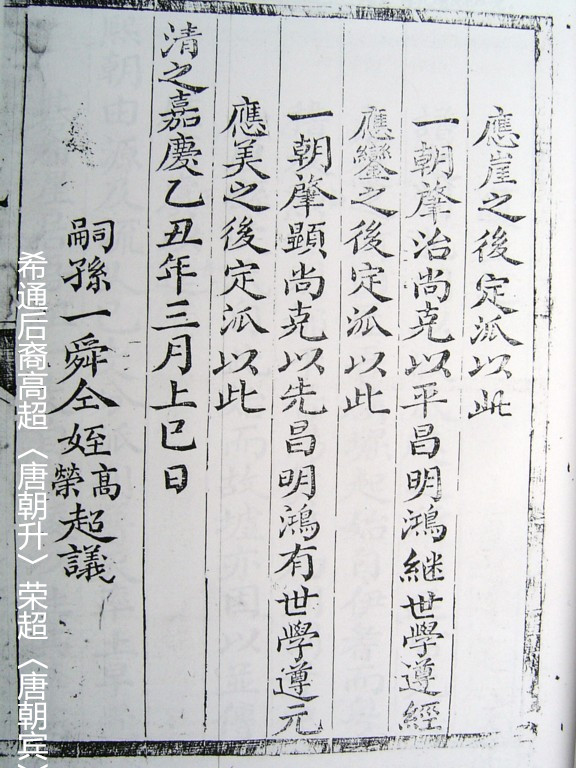 應崖之後定派以此
一朝肇治尚克以平昌明鴻継世學遵經
應鑾之後定派以此
一朝肇顕尚克以先昌明鴻有世學遵元
應美之後定派以此
清之嘉慶乙丑年三月上巳日
嗣孫一舜仝姪高榮超議
希通后裔高超〈唐朝升〉荣超〈唐朝宾